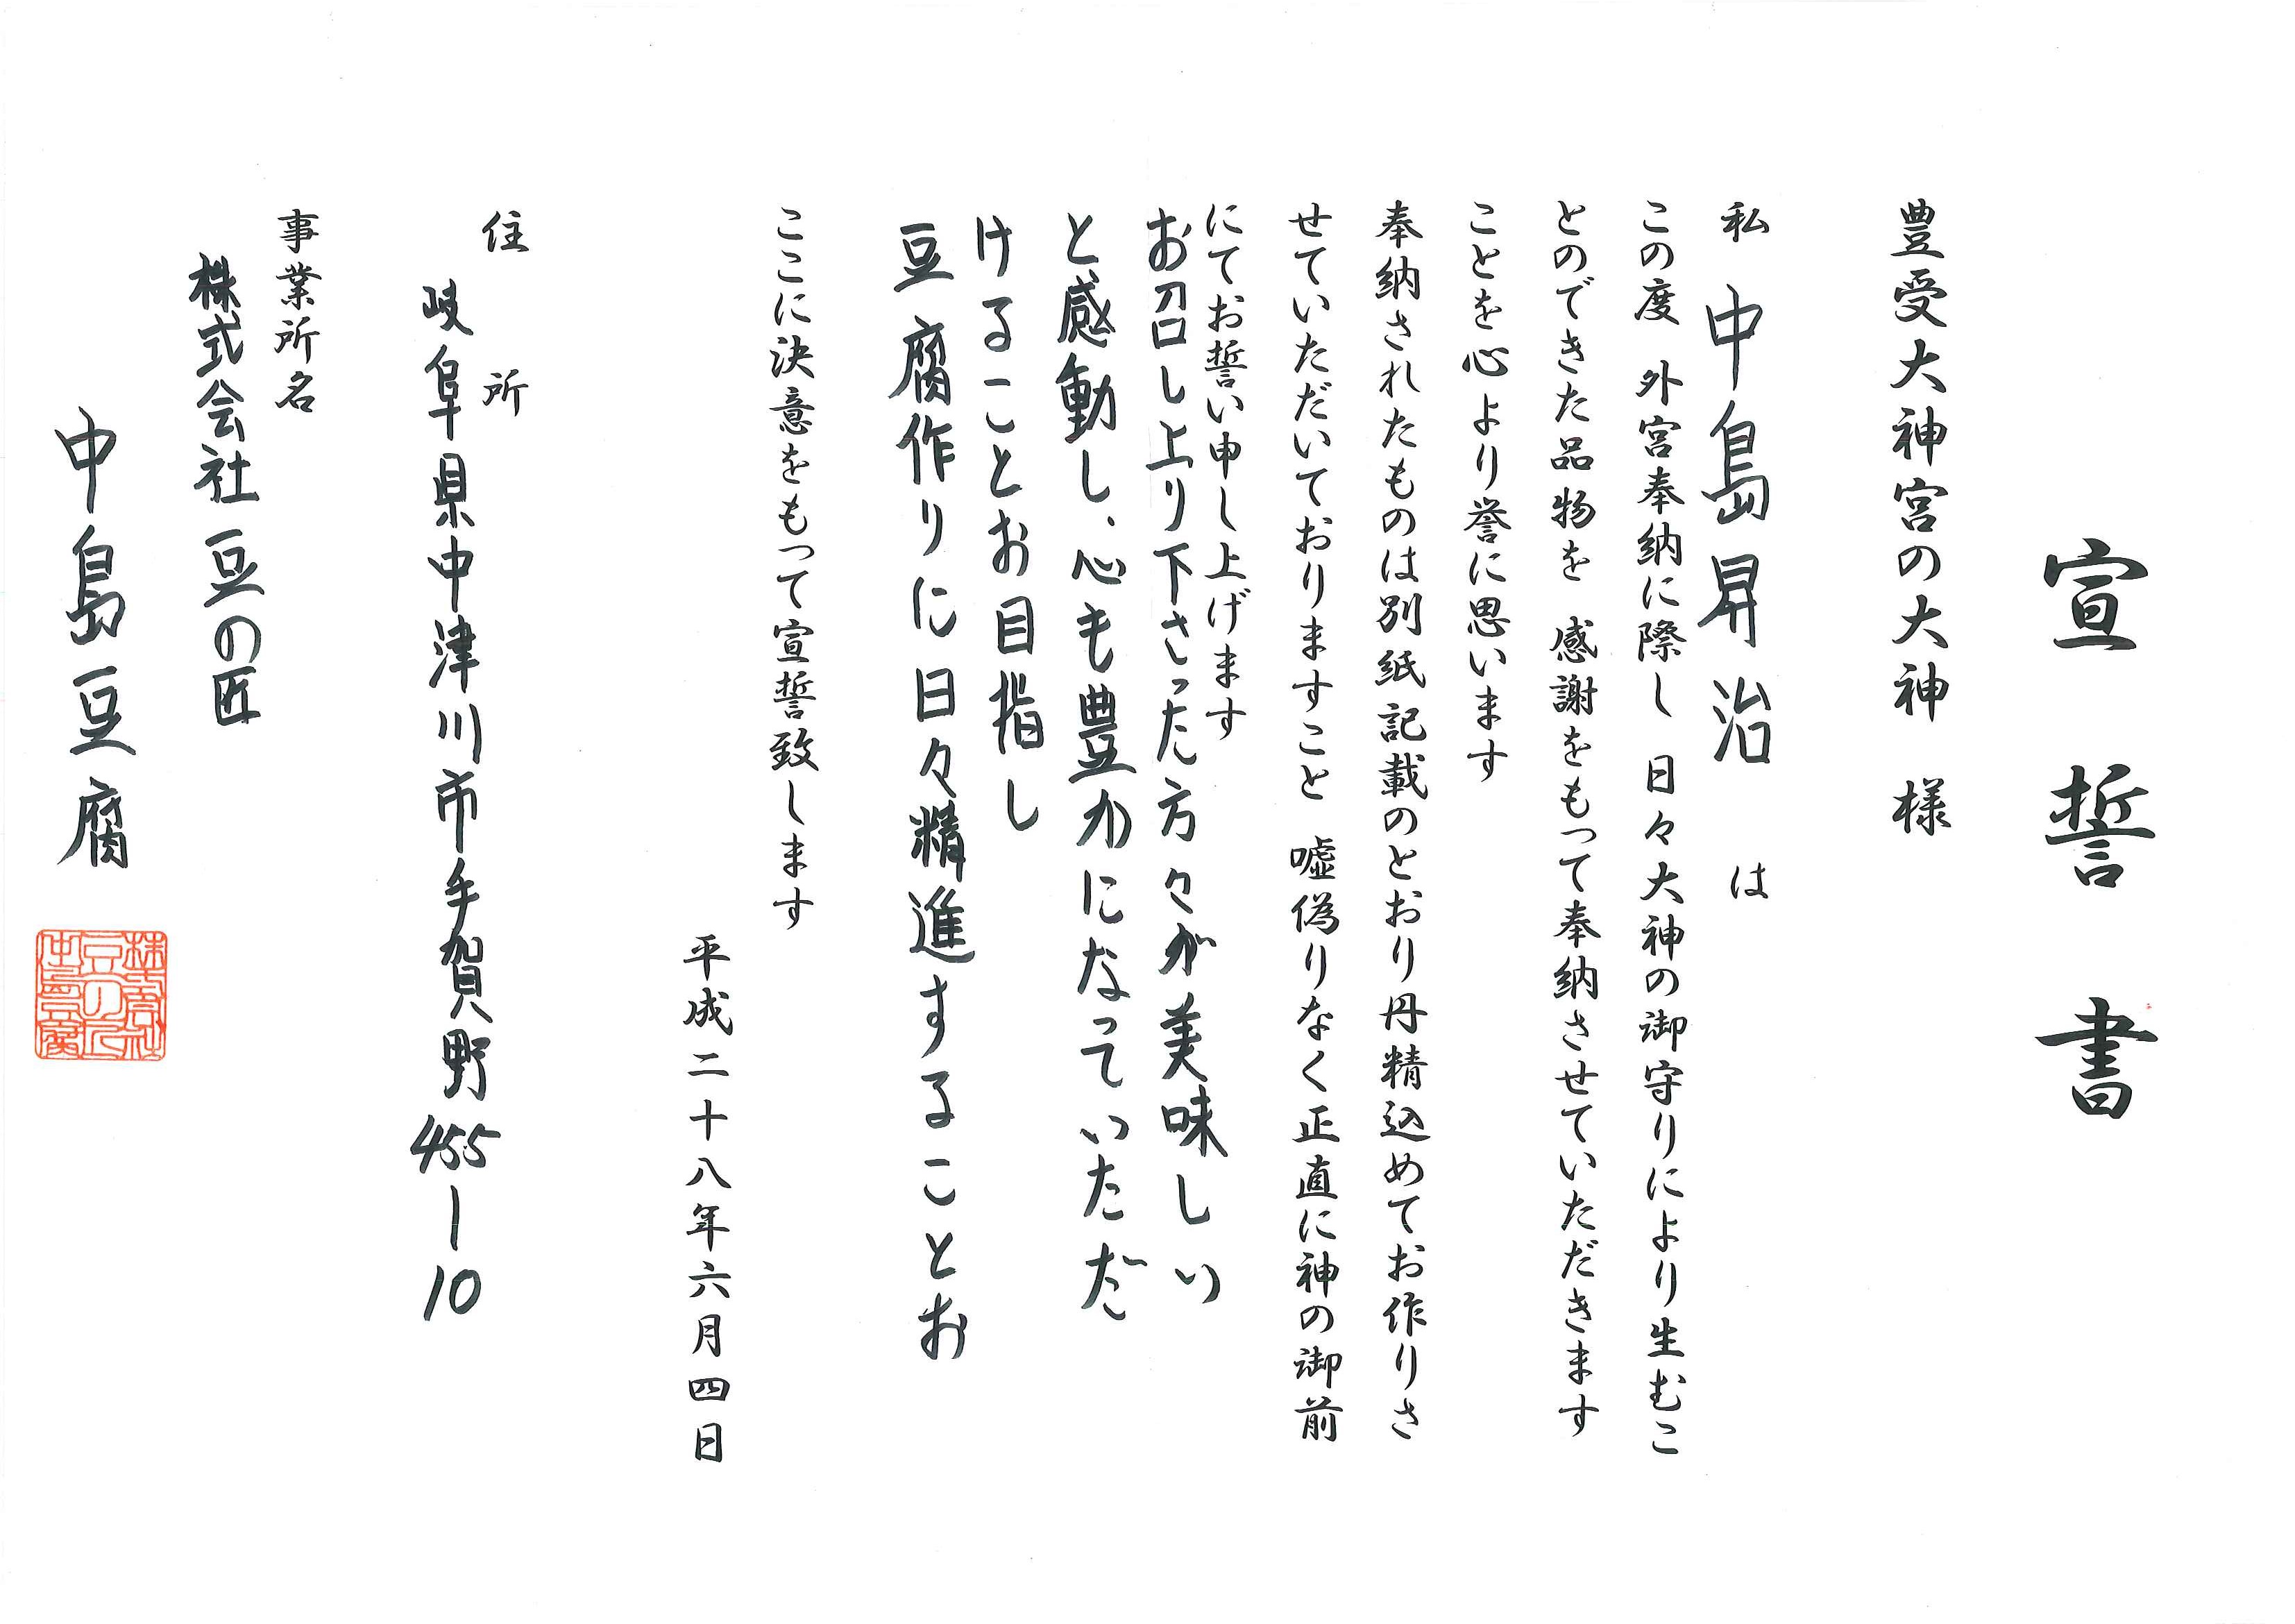 宣誓書
豊受大神宮の大神 様
私 中島昇治 は
この度 外宮奉納に際し 日々大神の御守りにより生むこ
とのできた品物を 感謝をもって奉納させていただきます
ことを心より誉に思います
奉納されたものは別紙記載のとおり丹精込めてお作りさ
せていただいておりますこと 嘘偽りなく正直に神の御前
にてお誓い申し上げます
お召し上り下さった方々が美味しい
と感動し、心も豊かになっていただ
けることお目指し
豆腐作りに日々精進することお
ここに決意をもって宣誓致します
平成二十八年六月四日
住所
岐阜県中津川市手賀野455-10
事業所名
株式会社 豆の匠
中島豆腐
株式会社
豆の匠
中島豆腐